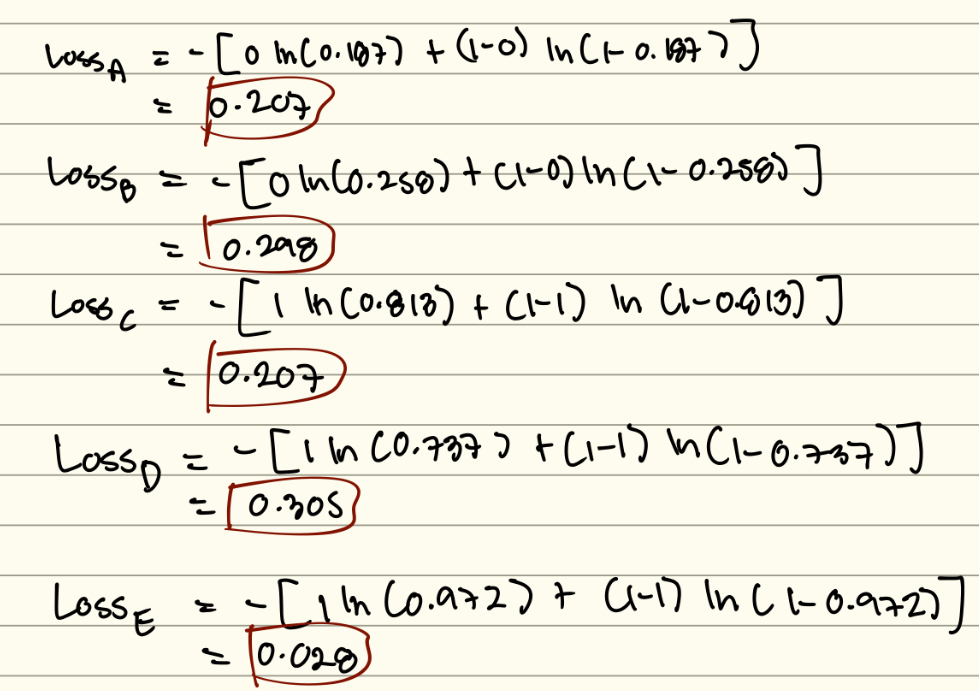 Loss_A = -[0 ln(0.187) + (1-0) ln(1-0.187)]
= 0.207
Loss_B = -[0 ln(0.258) + (1-0) ln(1-0.258)]
= 0.298
Loss_C = -[1 ln(0.813) + (1-1) ln(1-0.813)]
= 0.207
Loss_D = -[1 ln(0.737) + (1-1) ln(1-0.737)]
= 0.305
Loss_E = -[1 ln(0.972) + (1-1) ln(1-0.972)]
= 0.028